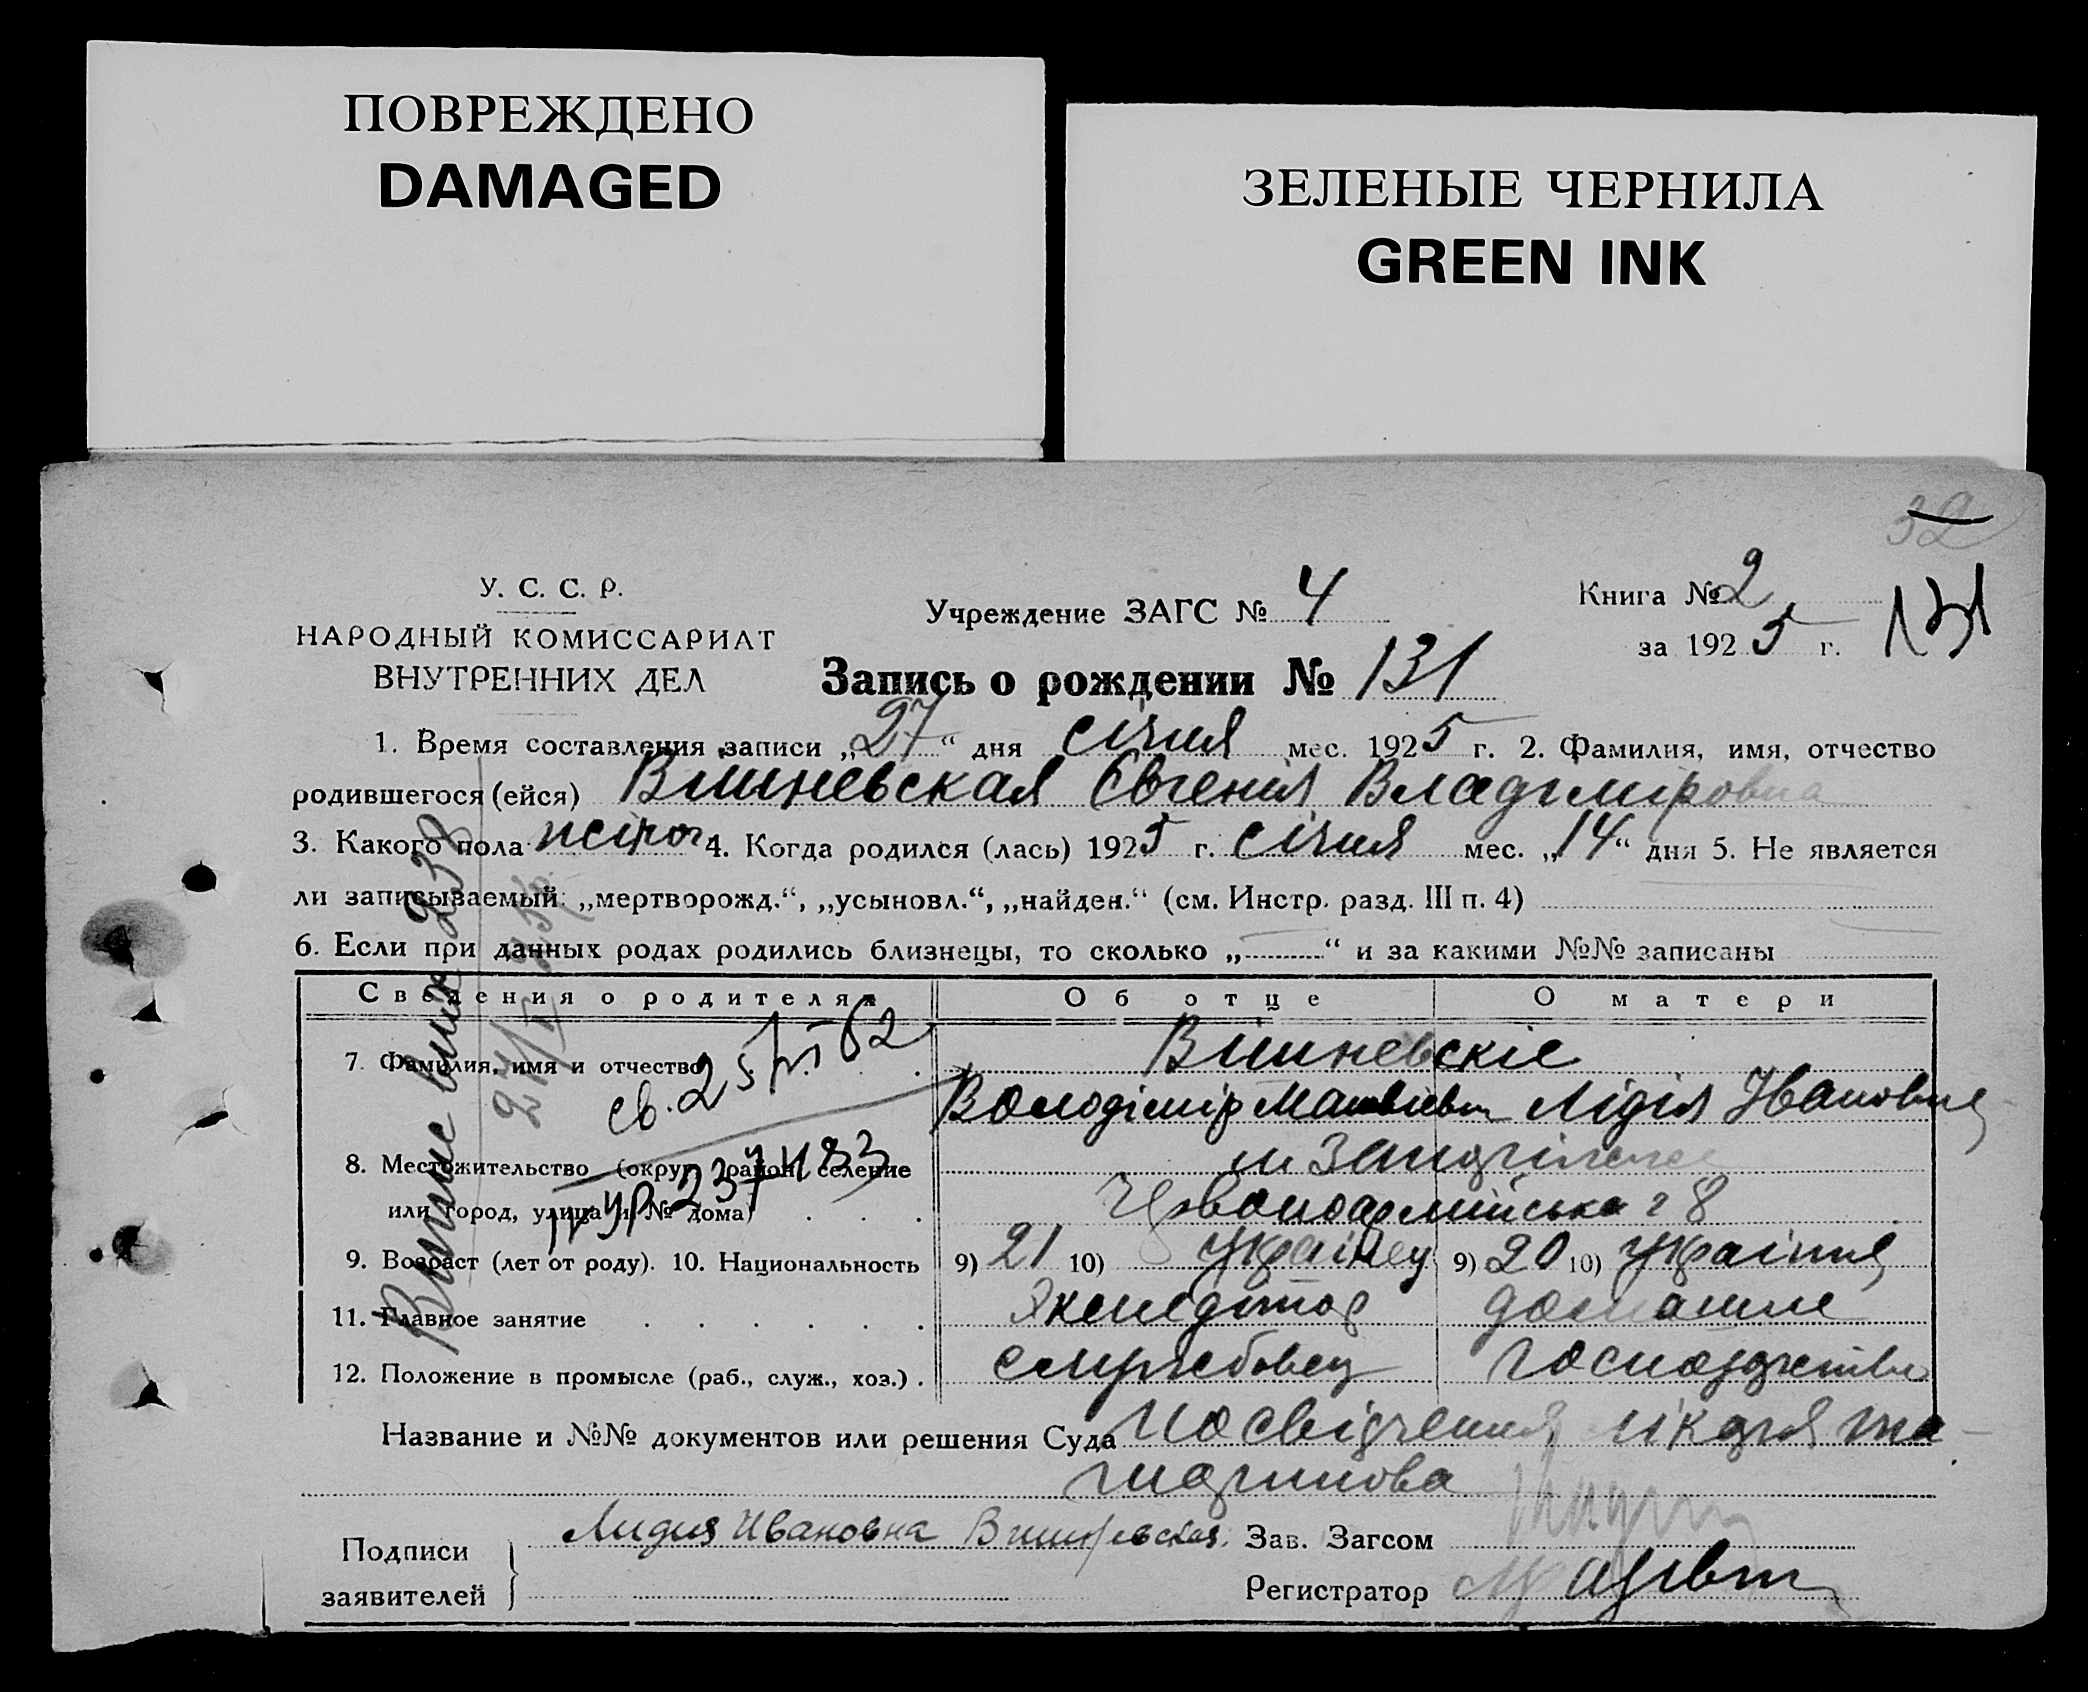 ПОВРЕЖДЕНО
DAMAGED
ЗЕЛЕНЫЕ ЧЕРНИЛА
GREEN INK
32
У. С. С. Р.
НАРОДНЫЙ КОМИССАРИАТ
ВНУТРЕННИХ ДЕЛ
Учреждение ЗАГС № 4
Книга № 2
за 1925 г.
131
Запись о рождении № 131
1. Время составления записи „27“ дня січня мес. 1925 г. 2. Фамилия, имя, отчество
родившегося (ейся) Вишневская Євгенія Владіміровна
3. Какого пола 4. Когда родился (лась) 1925 г. січня мес. „14“ дня 5. Не является
ли записываемый: „мертворожд.“, „усыновл.“, „найден.“ (см. Инстр. разд. III п. 4)
6. Если при данных родах родились близнецы, то сколько „ “ и за какими №№ записаны
Сведения о родителях Об отце О матери
7. Фамилия, имя и отчество Вишневскіе
Володімір Лідія Івановна
8. Местожительство (округ, район, селение
или город, улица и № дома) Червоноармійська 28
9. Возраст (лет от роду). 10. Национальность 9) 21 10) Українец 9) 20 10) Українка
11. Главное занятие Экспедітор домашнє
12. Положение в промысле (раб., служ., хоз.) службовец господарство
Название и №№ документов или решения Суда Посвідчення лікаря
Подписи
заявителей
Лидия Ивановна Вишневская
Зав. Загсом
Регистратор